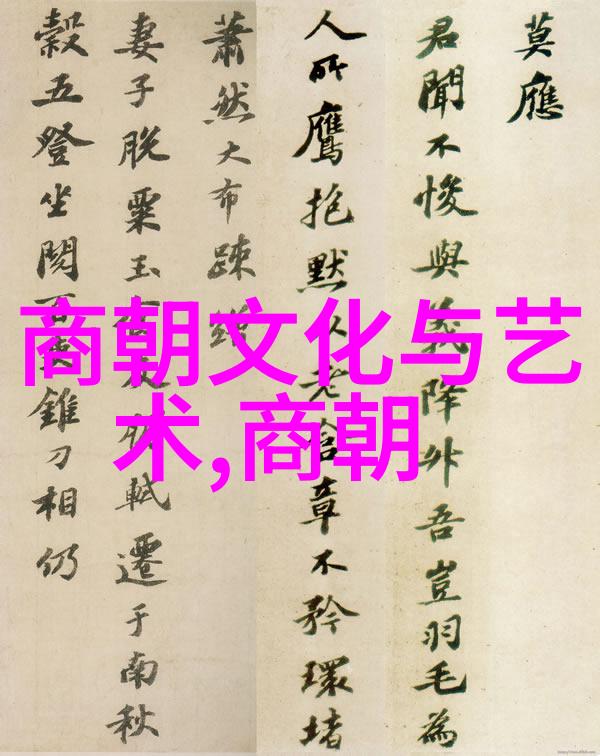 商朝文化与艺
术,商朝
莫應
君聞不悛與義降外吾豈羽毛為
人所鷹抱默以老含章不矜環堵
蕭然大布疎繒
妻子脫粟玉軾遷于南秋
穀五登坐閱百錐刀相仍